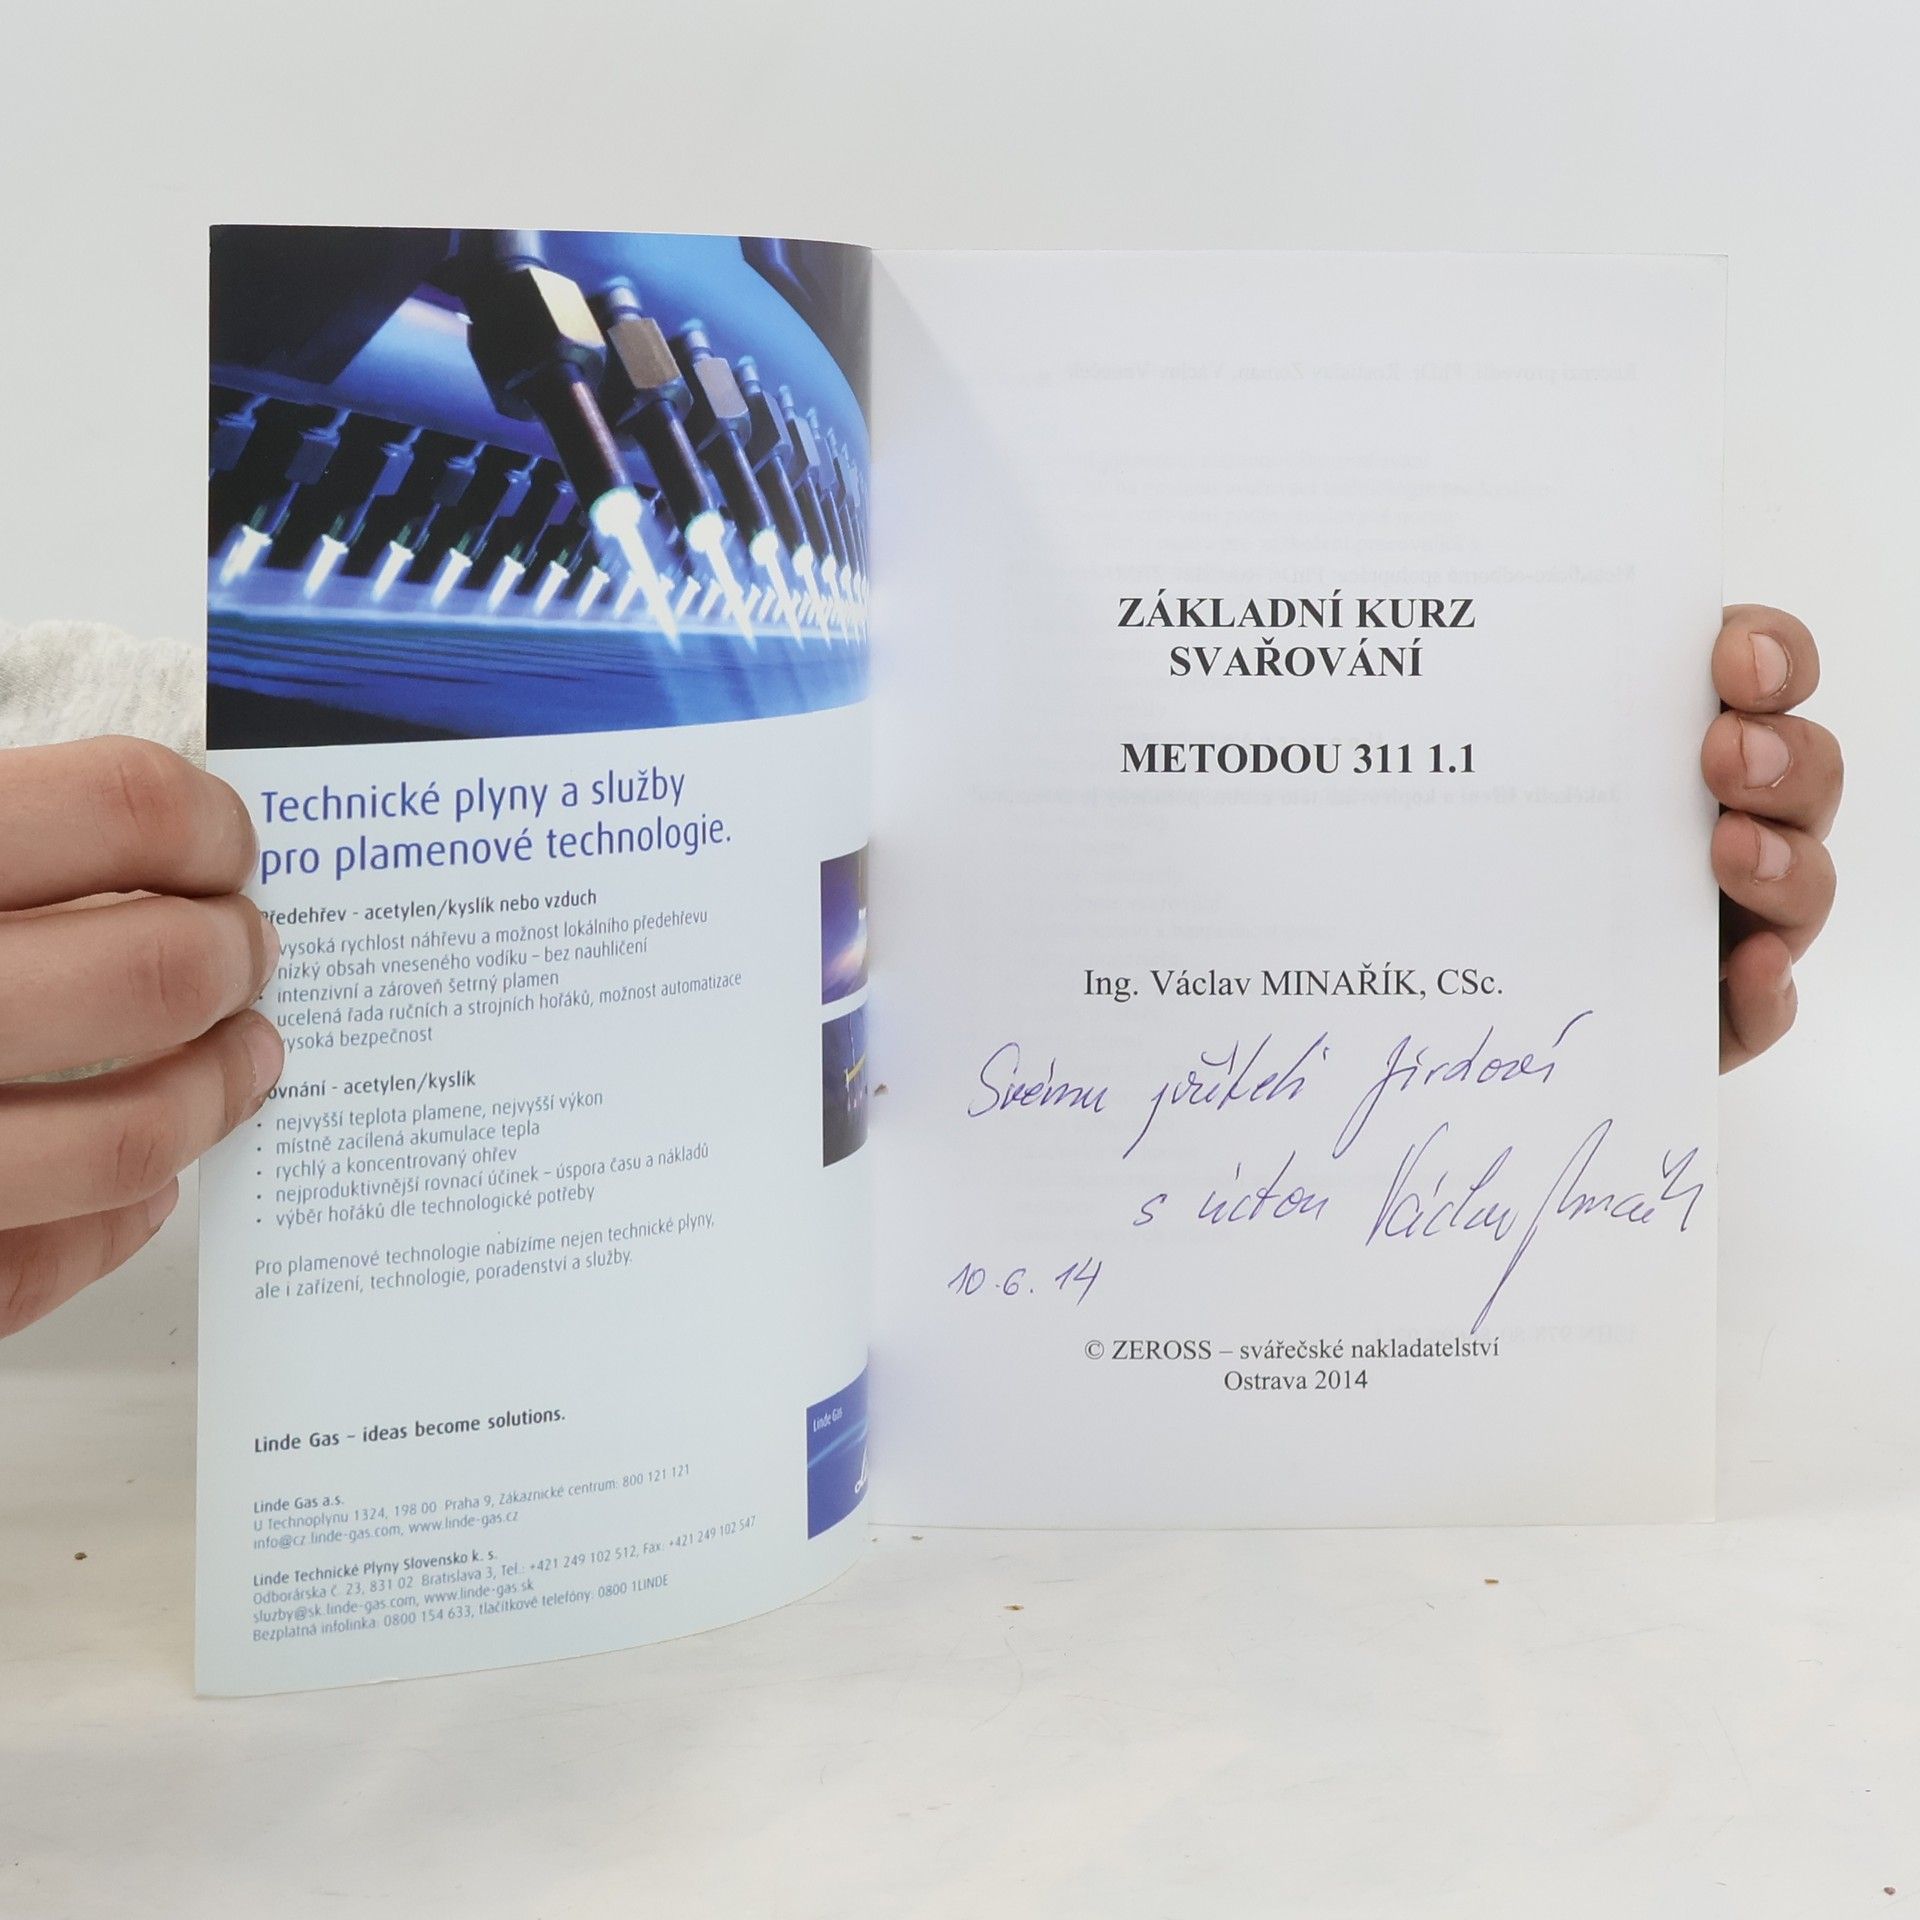 Technické plyny a služby
pro plamenové technologie.
Předehřev - acetylen/kyslík nebo vzduch
vysoká rychlost náhřevu a možnost lokálního předehřevu
nízký obsah vneseného vodíku – bez nauhličení
• intenzivní a zároveň šetrný plamen
ucelená řada ručních a strojních hořáků, možnost automatizace
vysoká bezpečnost
ovnání - acetylen/kyslík
• nejvyšší teplota plamene, nejvyšší výkon
• místně zacílená akumulace tepla
• rychlý a koncentrovaný ohřev
• nejproduktivnější rovnací účinek – úspora času a nákladů
• výběr hořáků dle technologické potřeby
Pro plamenové technologie nabízíme nejen technické plyny,
ale i zařízení, technologie, poradenství a služby.
Linde Gas – ideas become solutions.
Linde Gas a.s.
U Technoplynu 1324, 198 00 Praha 9, Zákaznické centrum: 800 121 121
info@cz.linde-gas.com, www.linde-gas.cz
Linde Technické Plyny Slovensko k. s.
Odborárska č. 23, 831 02 Bratislava 3, Tel.: +421 249 102 512, Fax: +421 249 102 547
sluzby@sk.linde-gas.com, www.linde-gas.sk
Bezplatná infolinka: 0800 154 633, tlačítkové telefóny: 0800 1LINDE
Linde Gas
ZÁKLADNÍ KURZ
SVAŘOVÁNÍ
METODOU 311 1.1
Ing. Václav MINAŘÍK, CSc.
Svému příteli Jirdoví
s úctou Václav Minařík
10.6.14
© ZEROSS – svářečské nakladatelství
Ostrava 2014